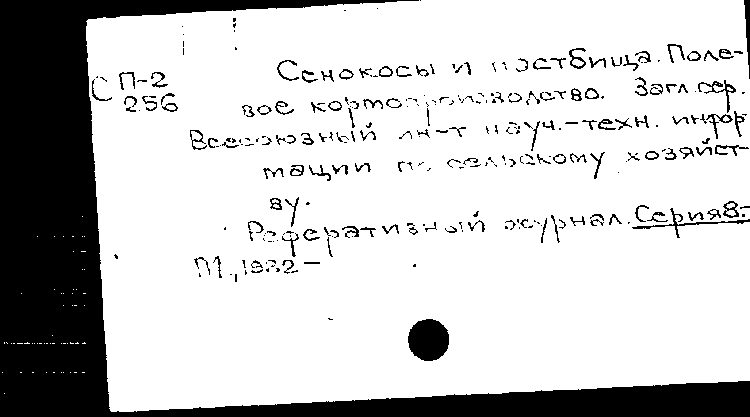 С П-2
256
Сенокосы и пастбища. Поле-
вое кормопроизводство. Загл. сер.
Всесоюзный ин-т науч.-техн. инфор
мации по сельскому хозяйст-
ву.
Реферативный журнал. Серия 8.-
М., 1982 –